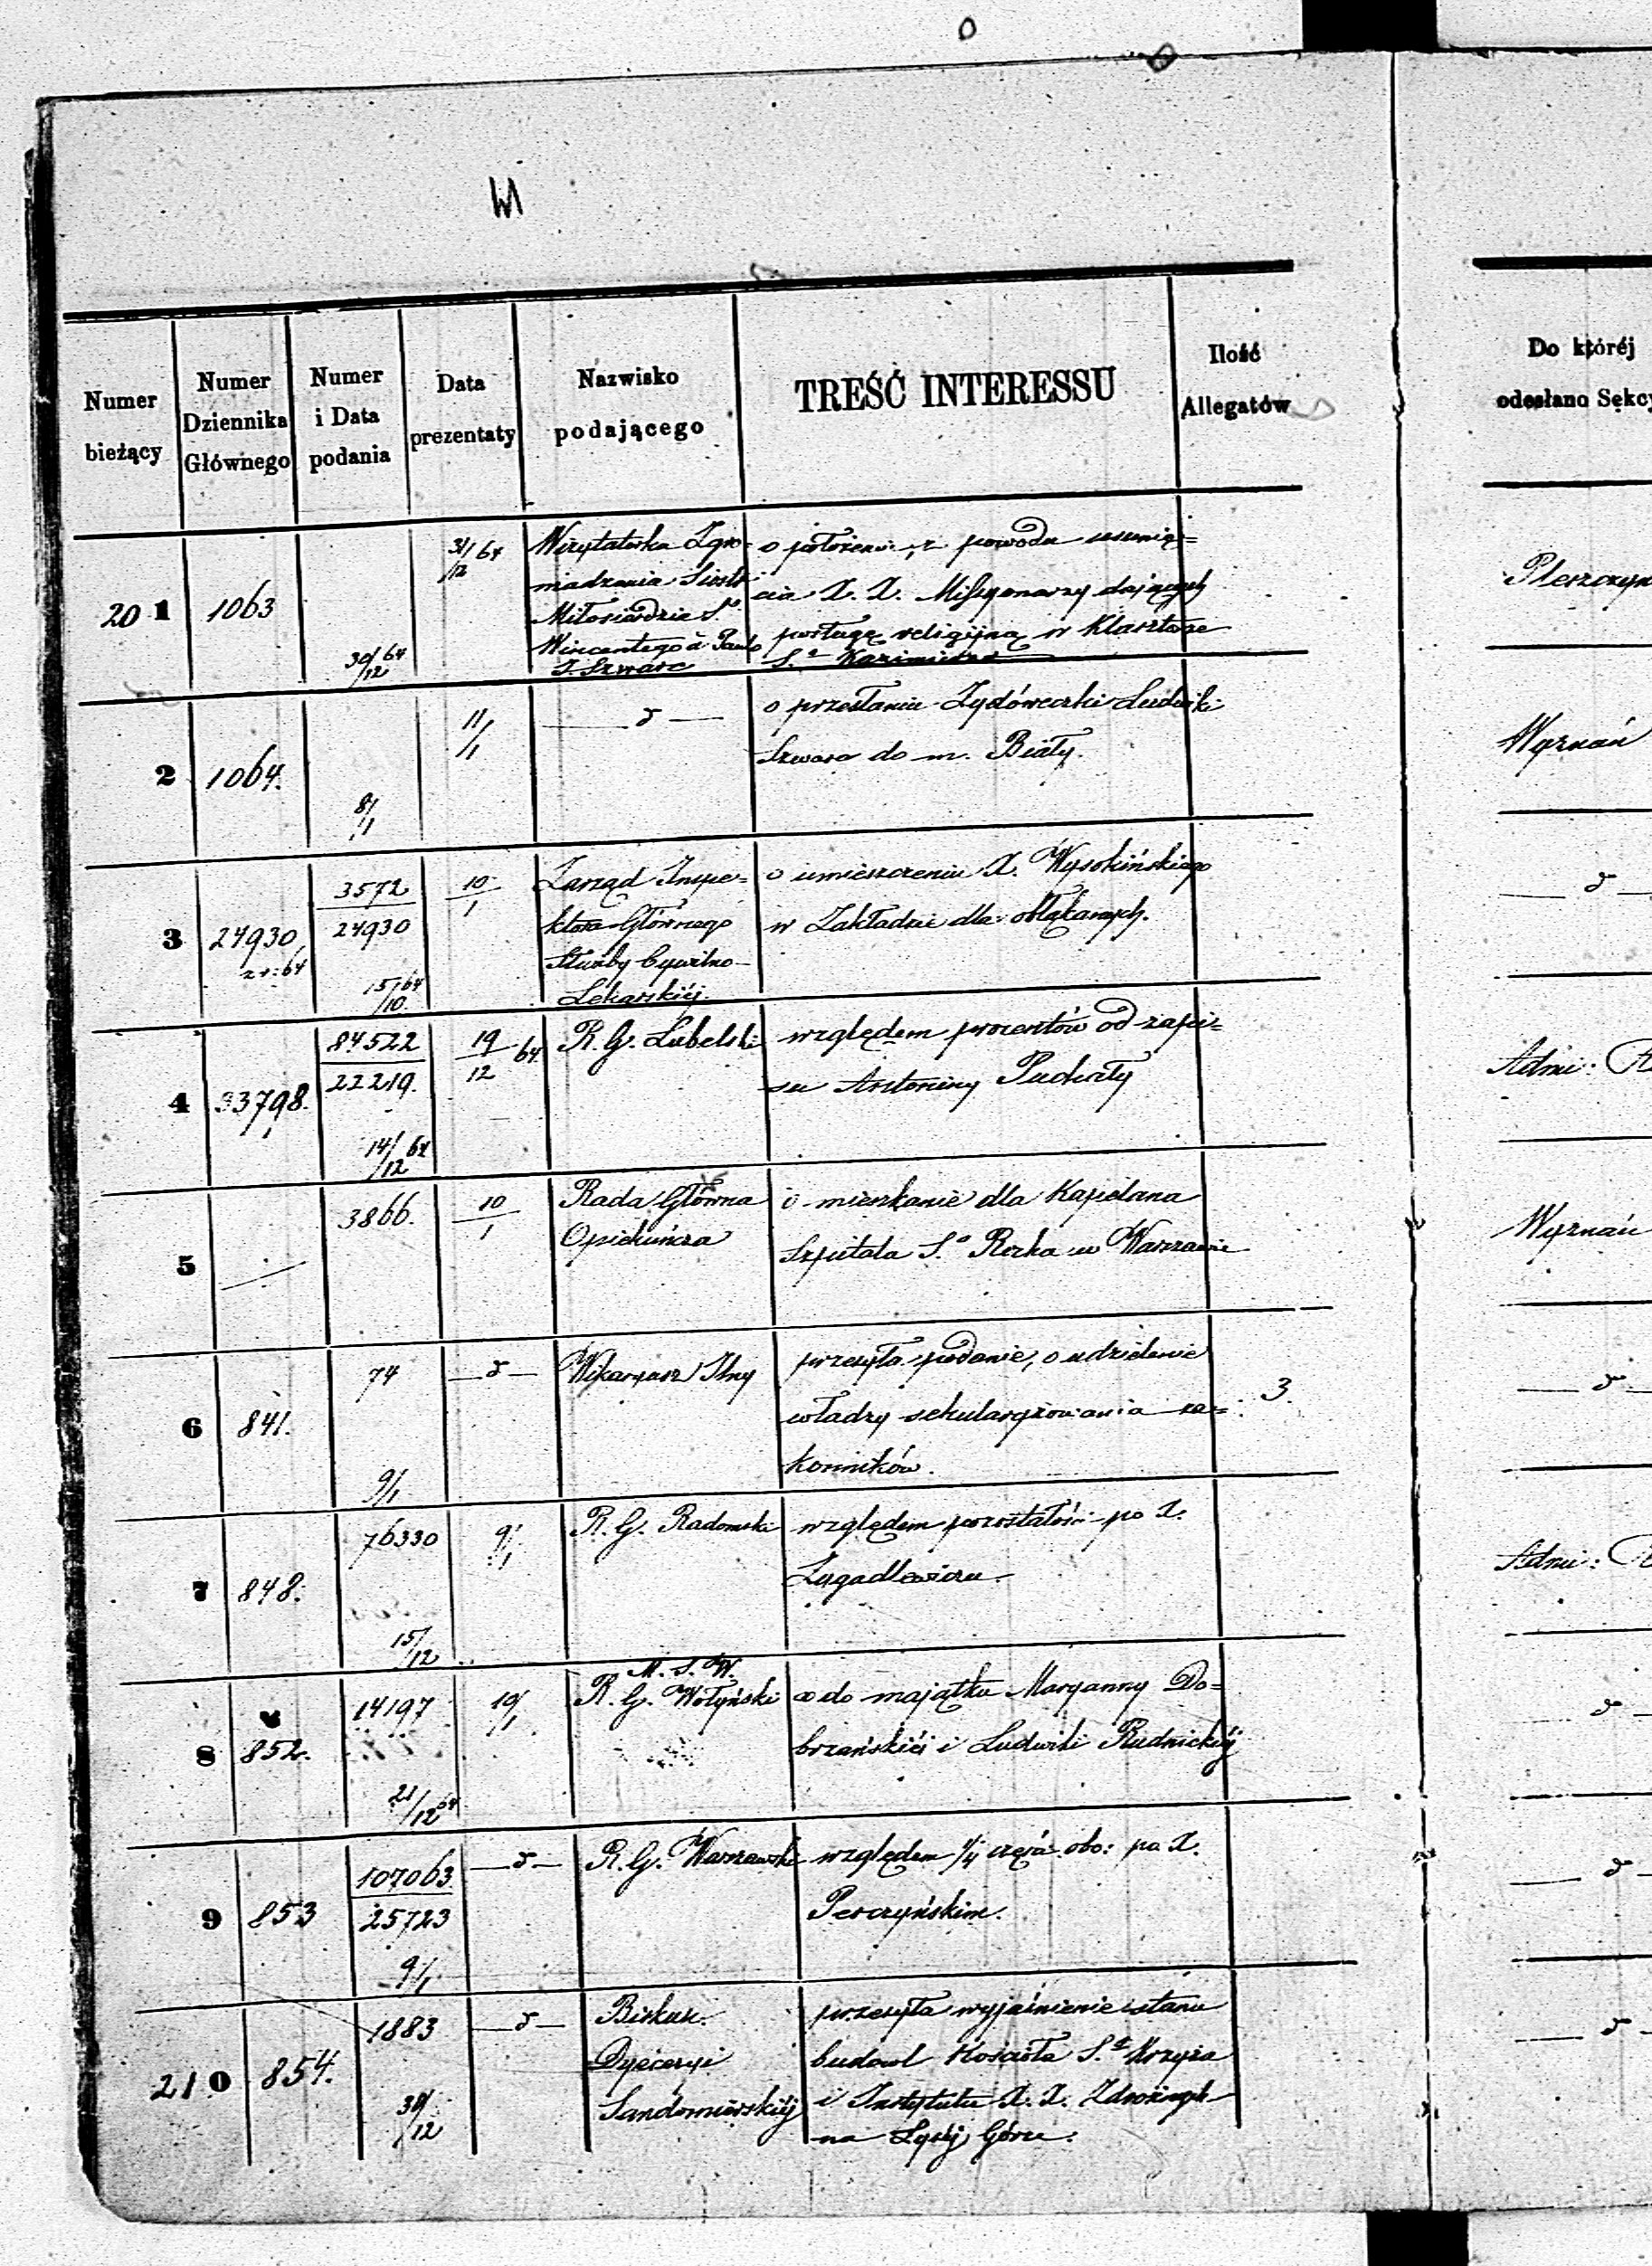 Numer bieżący
Numer Dziennika Głównego
Numer i Data podania
Data prezentaty
Nazwisko podającego
TREŚĆ INTERESSU
Ilość Allegatów
Do któréj odesłano Sekcy
20 1
1063
30/12 64
31/12 64
Wizytatorka Zgro-
madzenia Sióstr
Miłosierdzia S.
Wincentego à Paulo
J. Szwarc
o położeniu, z powodu usunię=
cia X. X. Missyonarzy dających
posługę religijną w Klasztorze
S. Kazimierza
2
1064.
8/1
11/1
d
o przesłaniu Żydóweczki Ludwiki
Szwarc do m. Biały.
Wyznań
3
24930
3572
24930
15/10 64
10/1
Zarząd Inspe=
ktora Głównego
Służby Cywilno-
Lekarskiéj.
o umieszczeniu X. Wysokińskiego
w Zakładzie dla obłąkanych.
d
4
33798.
84522
22219.
14/12 64
19/12 64
R. G. Lubelski
względem procentów od zapi=
su Antoniny Puchały
Admi:
5
3866.
10/1
Rada Główna
Opiekuńcza
o mieszkanie dla Kapelana
Szpitala S. Rocha w Warszawie
Wyznań
6
841.
74
9/1
d
Wikaryusz
przesyła podanie, o udzielenie
władzy sekularyzowania za=
konników.
3.
d
7
848.
76330
15/12
9/1
R. G. Radomski
względem pozostałości po X.
Admi:
8
852.
14197
21/12 64
10/1
M. S. W.
R. G. Wołyński
do majątku Maryanny Do=
brzańskiéj i Ludwiki Rudnickiéj
d
9
853
107063
25723
9/1
d
R. G. Warszawski
względem 1/4 części obo: po X.
Perczyńskim.
d
21 0
854.
1883
31/12
d
Biskup.
Dyecezyi
Sandomierskiéj
przesyła wyjaśnienie stanu
budowl Kościoła S. Krzyża
i Instytutu X. X. Zdrożnych
na Łyséj Górze.
d